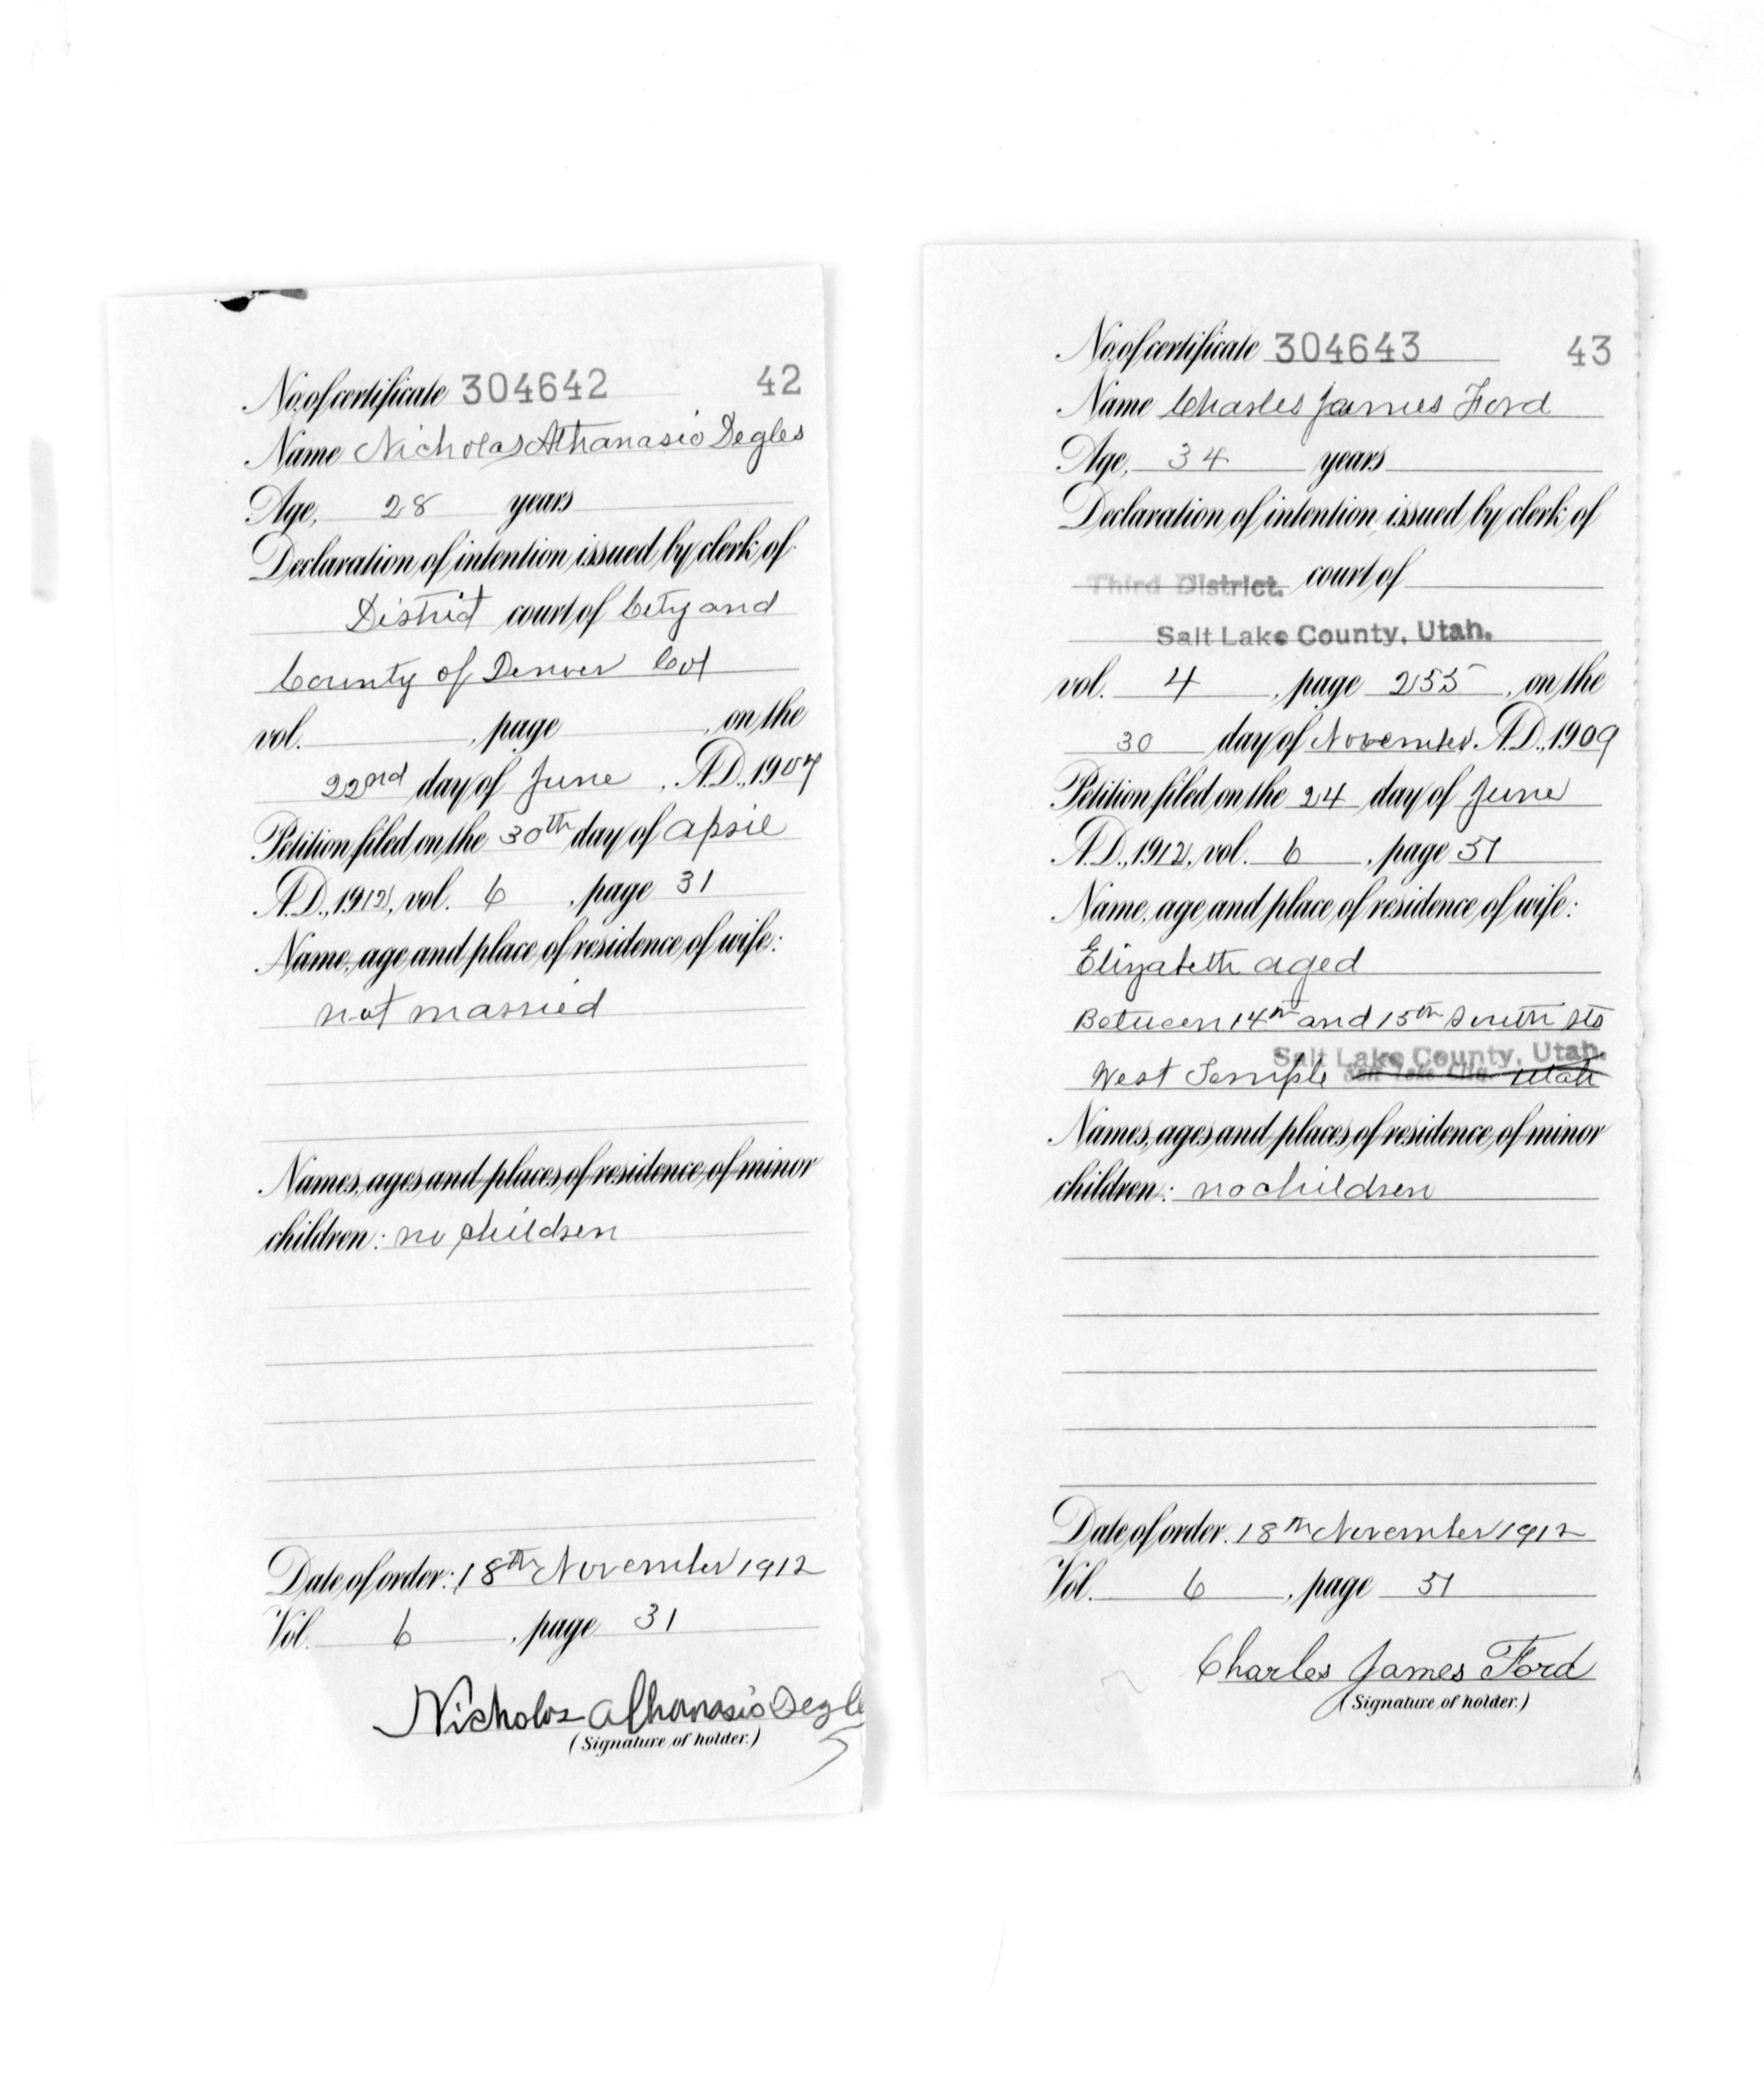 No. of certificate 304642 42
Name Nicholas Athanasio Degles
Age, 28 years
Declaration of intention issued by clerk of
District court of City and
County of Denver Col
vol. , page , on the
22nd day of June , A.D., 1907
Petition filed on the 30th day of April
A.D., 1912, vol. 6 , page 31
Name, age and place of residence of wife:
not married
Names, ages and places of residence of minor
children: no children
Date of order: 18th November 1912
Vol. 6 , page 31
Nicholas Athanasio Degles
(Signature of holder.)
No. of certificate 304643 43
Name Charles James Ford
Age, 34 years
Declaration of intention issued by clerk of
Third District. court of
Salt Lake County, Utah.
vol. 4 , page 255 , on the
30 day of November A.D., 1909
Petition filed on the 24 day of June
A.D., 1912, vol. 6 , page 51
Name, age and place of residence of wife:
Elizabeth aged
Between 14th and 15th South sts
Salt Lake County, Utah.
West Temple Salt Lake City Utah
Names, ages and places of residence of minor
children: no children
Date of order: 18th November 1912
Vol. 6 , page 51
Charles James Ford
(Signature of holder.)